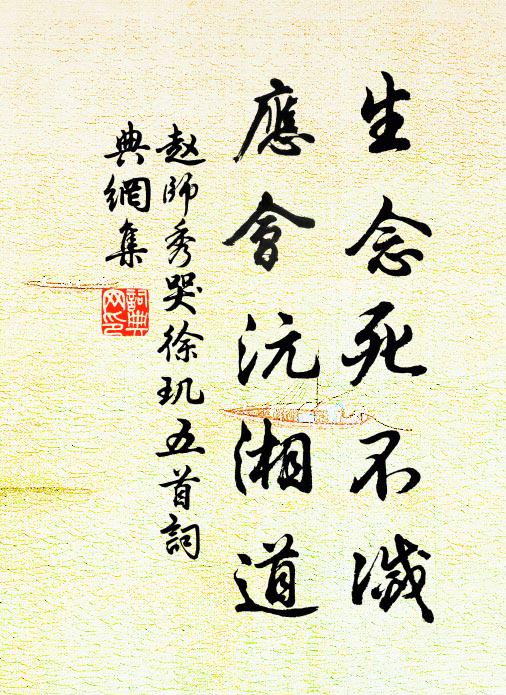 生念死不滅
應會沅湘道
赵師秀哭徐玑五首詞
典網集
詞典網印